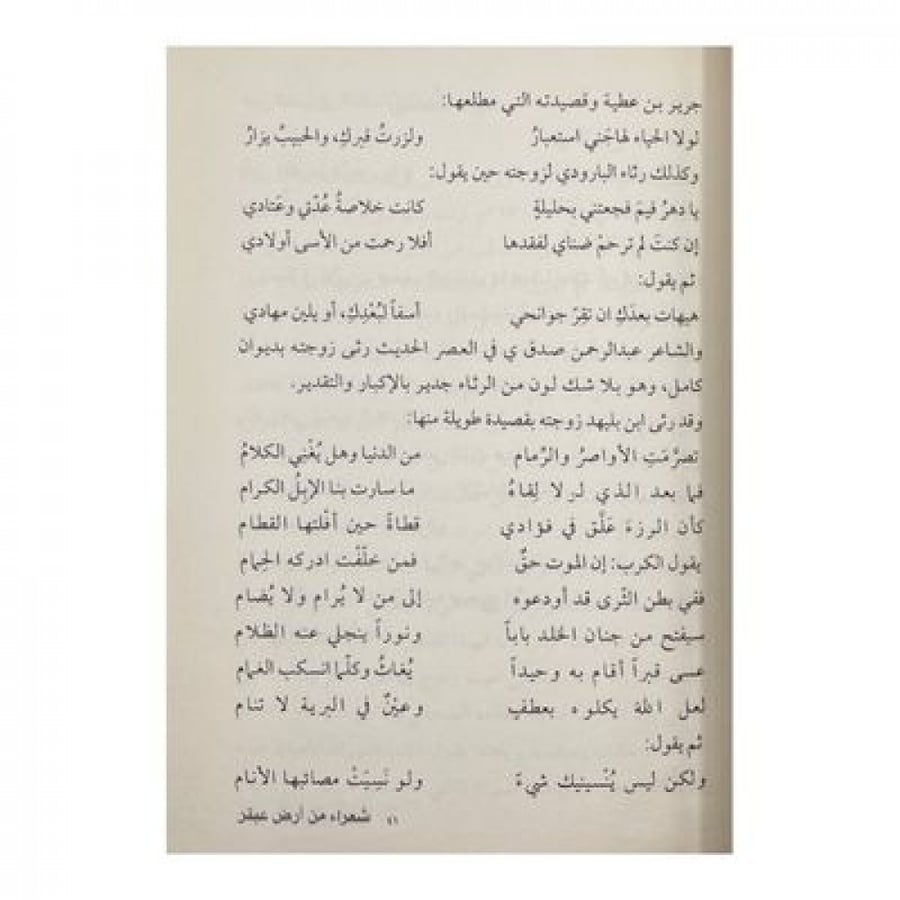 جرير بن عطية وقصيدته التي مطلعها:
لولا الحياء لهاجَني استعبارُ ولزرتُ قبركِ، والحبيبُ يزارُ
وكذلك رثاء البارودي لزوجته حين يقول:
يا دهرُ فيمَ فجعتني بحليلةٍ كانت خلاصةُ عُدّتي وعَتادي
إن كنتَ لم ترحمْ ضنايَ لفقدها أفلا رحمت من الأسى أولادي
ثم يقول:
هيهات بعدَكِ ان تقِرّ جوانحي أسفاً لبُعْدِكِ، أو يلين مهادي
والشاعر عبدالرحمن صدقي في العصر الحديث رثى زوجته بديوان
كامل، وهو بلا شك لون من الرثاء جدير بالإكبار والتقدير.
وقد رثى ابن بليهد زوجته بقصيدة طويلة منها:
تصرّمَتِ الأواصرُ والرِّمام من الدنيا وهل يُغْني الكلامُ
فما بعد الذي لولا لِقاهُ ما سارت بنا الإبِلُ الكرام
كأن الرزءَ عَلَّق في فؤادي قطاةً حين أفْلتها القطام
يقول الكرب: إن الموت حقٌ فمن خلّفْت ادركه الحِمام
ففي بطن الثّرى قد أودعوه إلى من لا يُرام ولا يُضام
سيفتح من جنان الخلد باباً ونوراً ينجلي عنه الظلام
عسى قبراً أقام به وحيداً يُغاثُ وكلّما انسكب الغمام
لعل اللهَ يكلوه بعطفٍ وعيْنٌ في البرية لا تنام
ثم يقول:
ولكن ليس يُنْسينيك شيءٌ ولو نَسِيَتْ مصائبها الأنام
٤١ شعراء من أرض عبقر